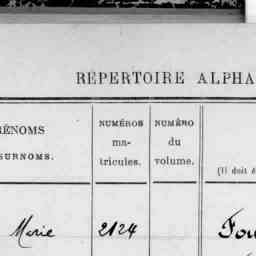 RÉPERTOIRE ALPHA
RÉNOMS
SURNOMS.
NUMÉROS
ma-
tricules.
NUMÉRO
du
volume.
(Il doit ê
Marie 2124 Fou